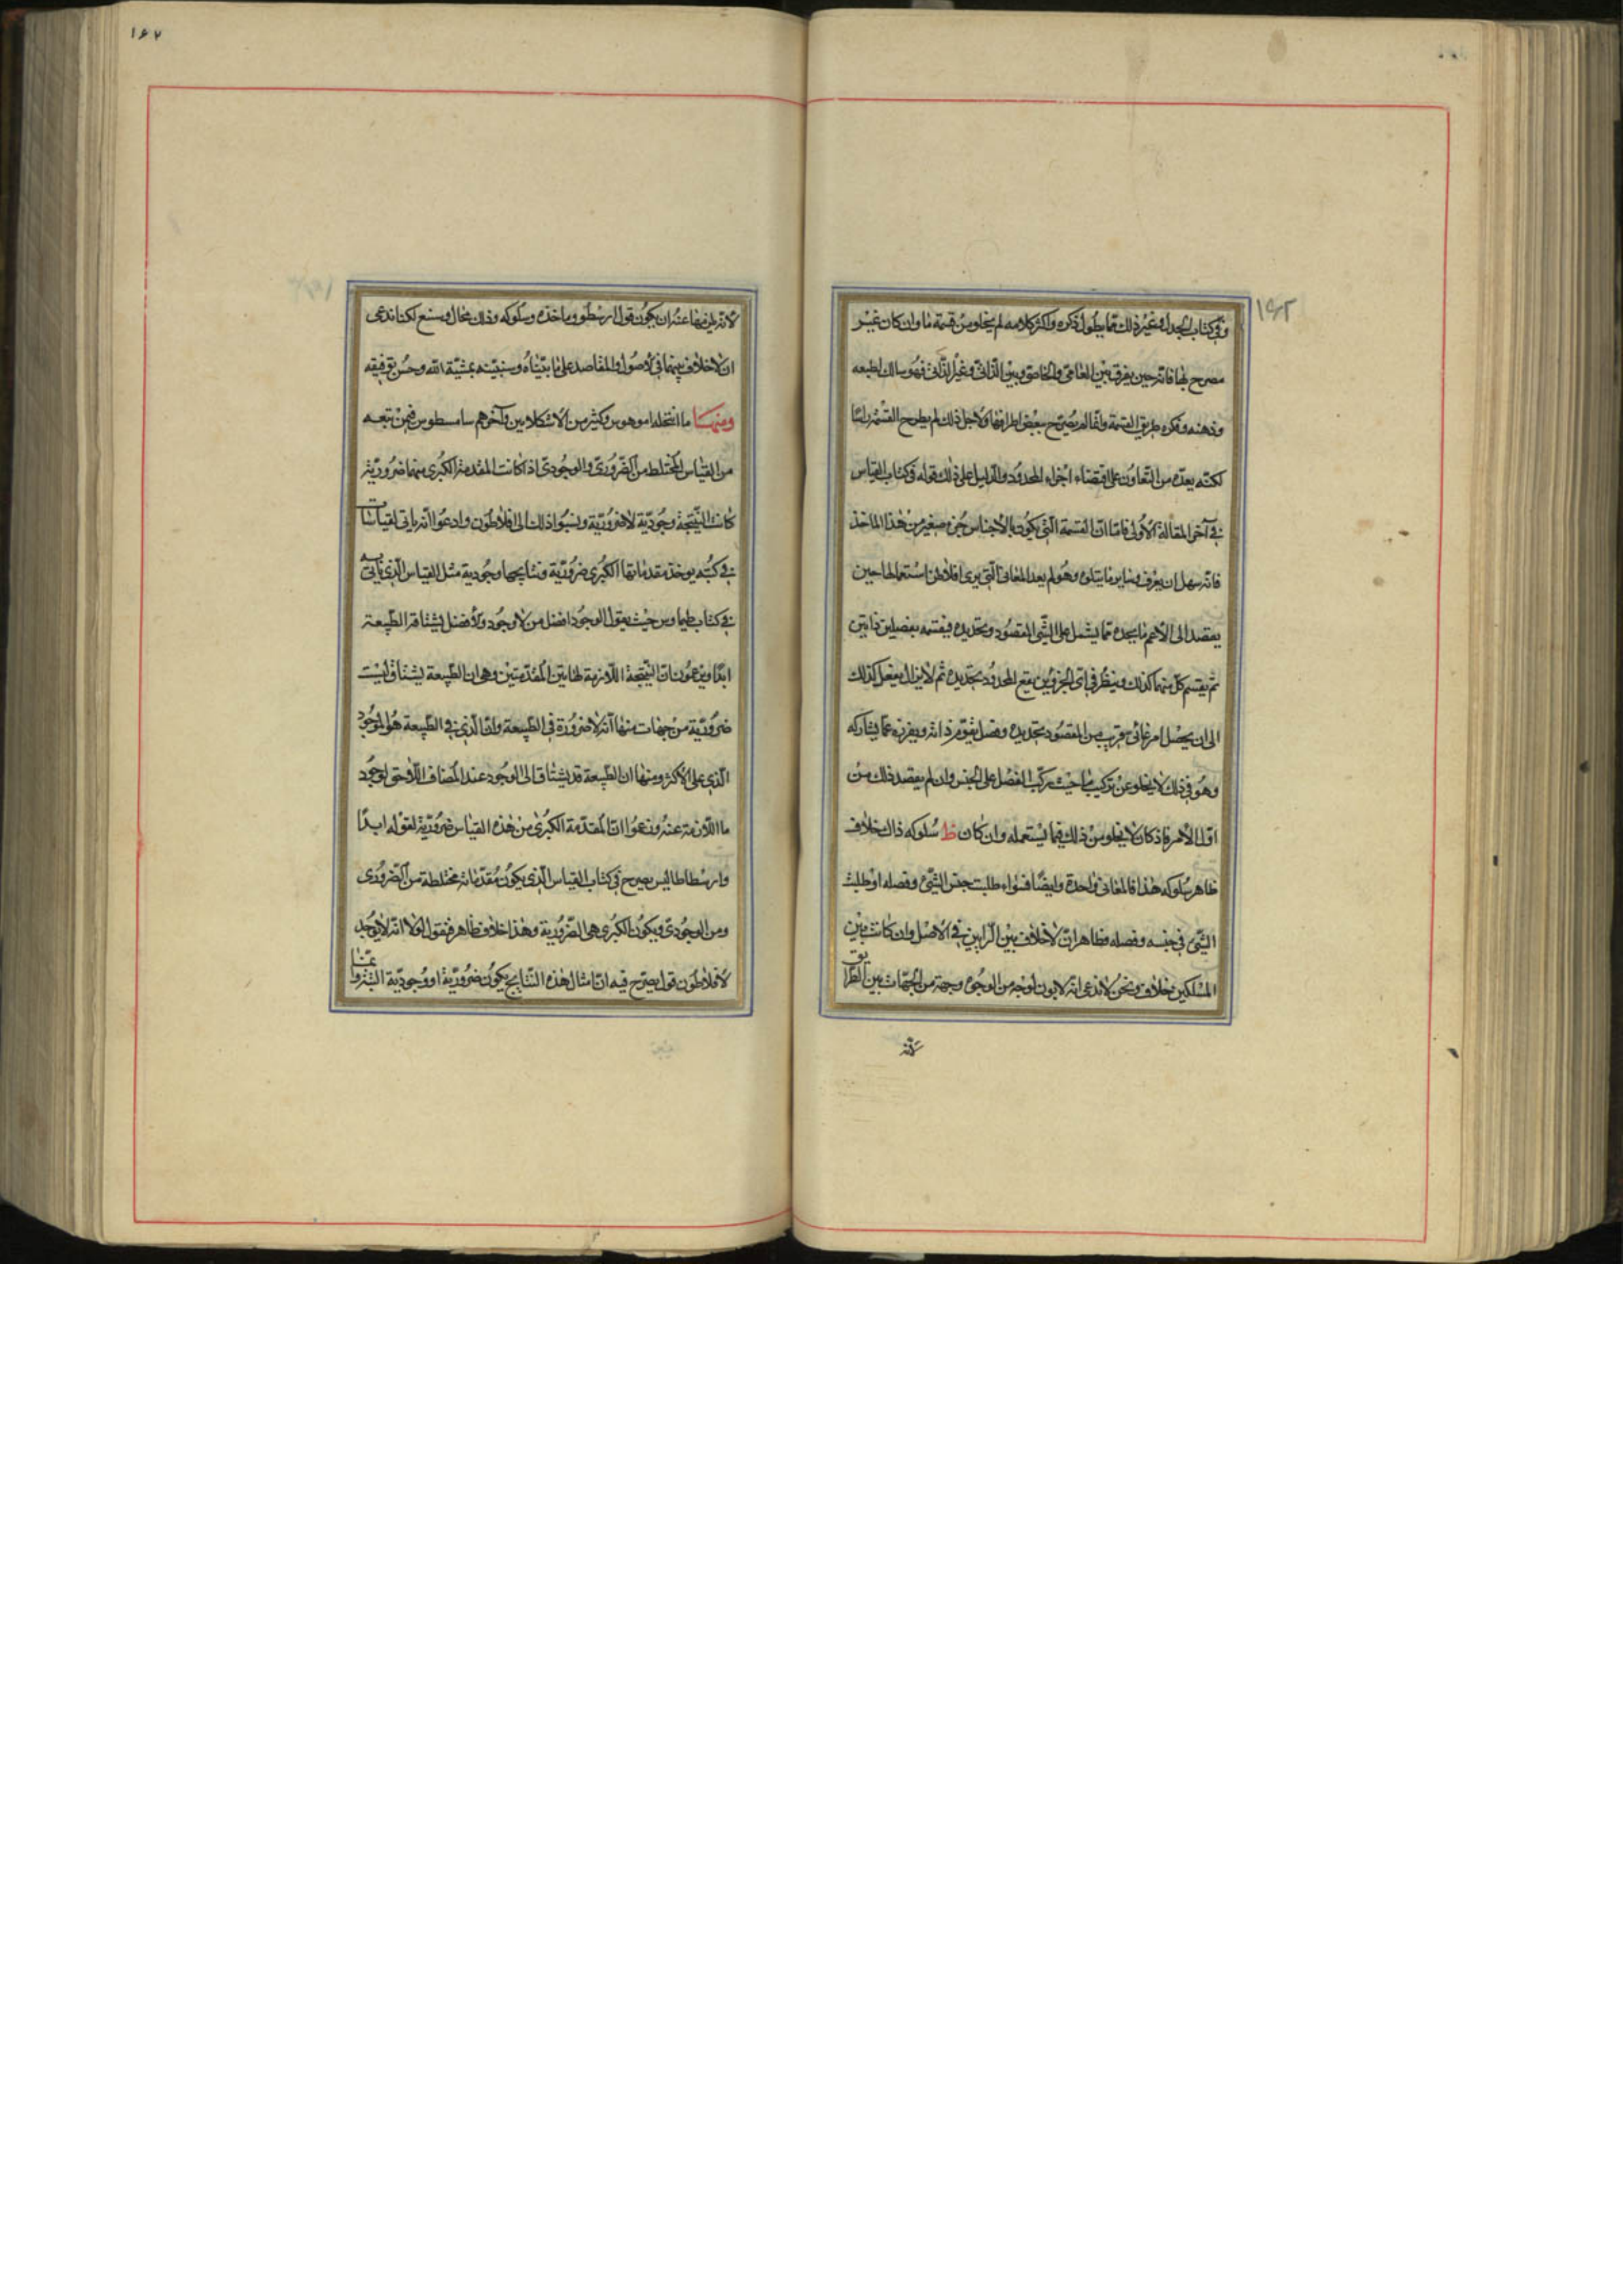 وفي كتاب الجدل وغير ذلك مما يطول ذكره واكثر كلامه لم يخلو من قسمة ما وان كان غير
مصرح بها فانه حين يفرق بين العامي والخاصي وبين الذاتي وغير الذاتي فهو سالك بطبعه
وذهنه وفكره طريق القسمة وانما لم يصرح ببعض اطرافها ولاجل ذلك لم يطرح القسمة راسا
لكنه يعده من التعاون على اقتضاء اجزاء المحدود والدليل على ذلك قوله في كتاب القياس
في آخر المقالة الاولى فاما ان القسمة التي يكون بالاجناس جزء صغير من هذا الماخذ
فانه سهل ان يعرف وساير ما يتلوه وهو لم يعد المعاني التي يرى افلاطن استعمالها حين
يقصد الى الاعم ما يجده مما يشمل على الشيء المقصود وتحديده فيقسمه بفصلين ذاتيين
ثم يقسم كل منهما كذلك وينظر في اي الجزوين يقع المحدود بتحديده ثم لا يزال يفعل كذلك
الى ان يحصل امر عامي قريب من المقصود بتحديده وفصل يقوم ذاته ويفرزه عما يشاركه
وهو في ذلك لا يخلو عن تركيب ما حيث يركب الفصل على الجنس وان لم يقصد ذلك من
اول الامر فاذ كان لا يخلو من ذلك فيما يستعمله وان كان ظ سلوكه ذاك خلاف
ظاهر سلوكه هذا فالمعاني واحدة وايضا فسواء طلبت جنس الشيء وفصله او طلبت
الشيء في جنسه وفصله فظاهر ان لا خلاف بين الرايين في الاصل وان كانت بين
المسلكين خلاف ونحن لا ندعي انه لا بون بوجه من الوجوه وجهة من الجهات بين الطرا
يقين
لانه يلزمنا عنه ان يكون قول ارسطو وماخذه وسلوكه وذلك محال وشنع لكنا ندعي
ان لا خلاف بينهما في الاصول والمقاصد على ما بيناه وسنبينه بمشية الله وحسن توفيقه
ومنها ما انتحله امونيوس وكثير من الاسكلايين وآخرهم سامسطوس فمن تبعه
من القياس المختلط من الضروري والوجودي اذا كانت المقدمة الكبرى منهما ضرورية
كانت النتيجة وجودية لا ضرورية ونسبوا ذلك الى افلاطون وادعوا انه ياتي بقياسات
في كتبه يوخذ مقدماتها الكبرى ضرورية ونتايجها وجودية مثل القياس الذي ياتي به
في كتاب طيماوس حيث يقول الوجود افضل من لا وجود والافضل يشتاقه الطبيعة
ابدا ويزعمون ان النتيجة اللازمة لهاتين المقدمتين وهي ان الطبيعة يشتاق ليست
ضرورية من جهات منها انه لا ضرورة في الطبيعة وان الذي في الطبيعة هو الموجود
الذي على الاكثر ومنها ان الطبيعة قد يشتاق الى الوجود عند المضاف اللاحق لوجود
ما اللازمة عنه وزعموا ان المقدمة الكبرى من هذه القياس ضرورية لقوله ابدا
وارسطاطاليس يصرح في كتاب القياس الذي يكون مقدماته مختلطة من الضروري
ومن الوجودي ويكون الكبرى هي الضرورية وهذا خلاف ظاهر فنقول اولا انه لا يوجد
لافلاطون قول يصرح فيه ان امثال هذه النتايج يكون ضرورية او وجودية البتة